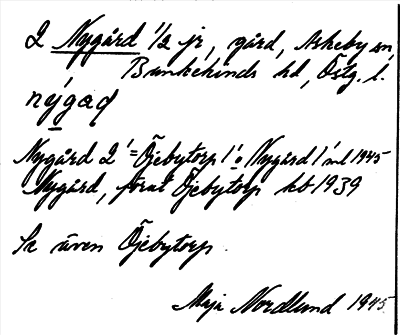 2 Nygård 1/2 jr, gård, Askeby sn,
Bankekinds hd, Östg. l.
nýgaɖ
Nygård 2' = Öjebytorp 1' o Nygård 1' ml 1945
Nygård, förut Öjebytorp kb 1939
Se även Öjebytorp.
Maja Nordlund 1945